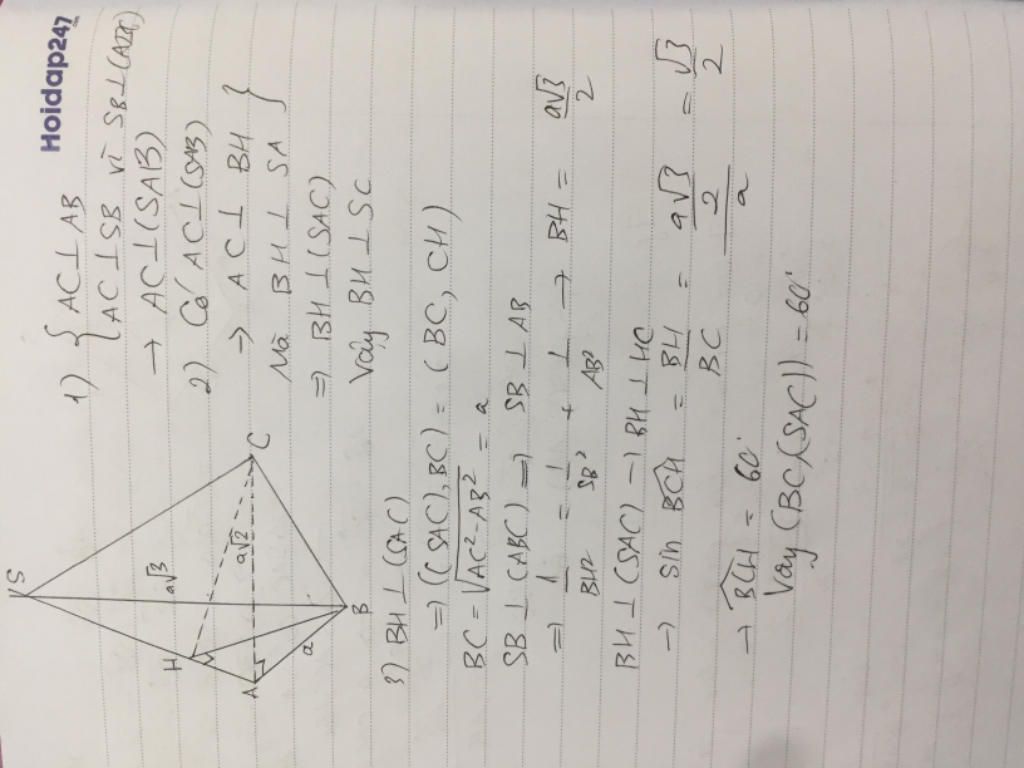 Hoidap247
.com
S
a√3
H
a√2
C
A
a
B
1) { AC ⊥ AB
AC ⊥ SB vì SB ⊥ (ABC)
→ AC ⊥ (SAB)
2) Có AC ⊥ (SAB)
→ AC ⊥ BH
Mà BH ⊥ SA }
⇒ BH ⊥ (SAC)
Vậy BH ⊥ SC
3) BH ⊥ (SAC)
⇒ ((SAC), BC) = (BC, CH)
BC = √AC² - AB² = a
SB ⊥ (ABC) ⇒ SB ⊥ AB
⇒ 1/BH² = 1/SB² + 1/AB² → BH = a√3/2
BH ⊥ (SAC) → BH ⊥ HC
→ sin BCH = BH/BC = a√3/2/a = √3/2
→ BCH = 60°
Vậy (BC, (SAC)) = 60°